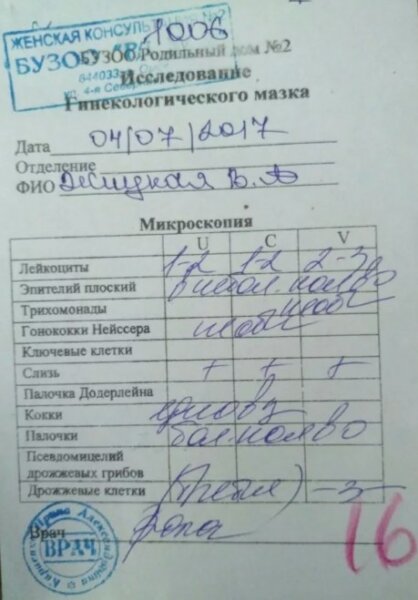 ЖЕНСКАЯ КОНСУЛЬТАЦИЯ №2
БУЗОО
1006
БУЗОО Родильный дом №2
Исследование
Гинекологического мазка
Дата 04/07/2017
Отделение
ФИО
Микроскопия
U C V
Лейкоциты 1-2 1-2 2-3
Эпителий плоский в небол. кол-во
Трихомонады необ
Гонококки Нейссера необ
Ключевые клетки
Слизь + + +
Палочка Додерлейна
Кокки
Палочки бол. кол-во
Псевдомицелий
дрожжевых грибов
Дрожжевые клетки -3-
Врач
ВРАЧ
16